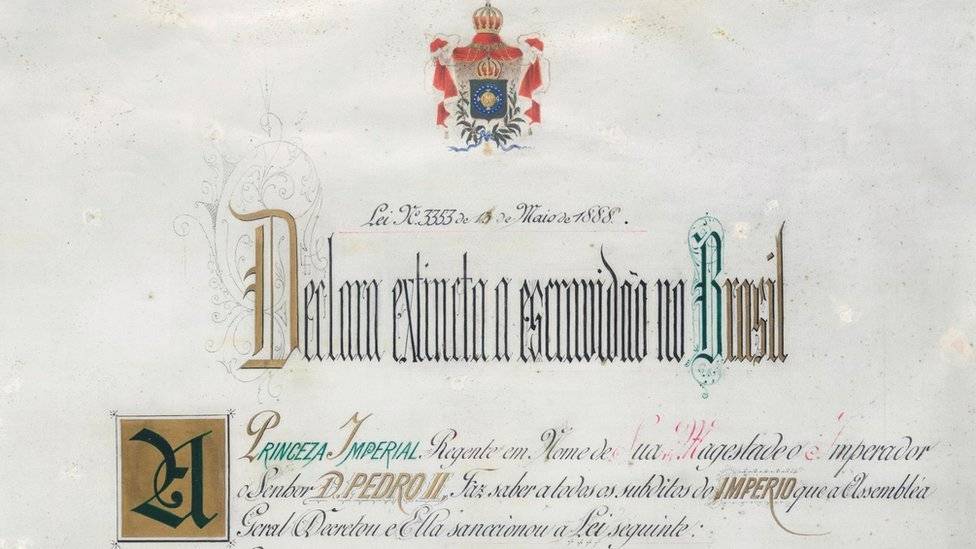 Lei Nº. 3353 de 13 de Maio de 1888.
Declara extincta a escravidão no Brasil
A PRINCEZA IMPERIAL Regente em Nome de Sua Magestade o Imperador
o Senhor D. PEDRO II, Faz saber a todos os subditos do IMPERIO que a Assembléa
Geral Decretou e Ella sanccionou a Lei seguinte: